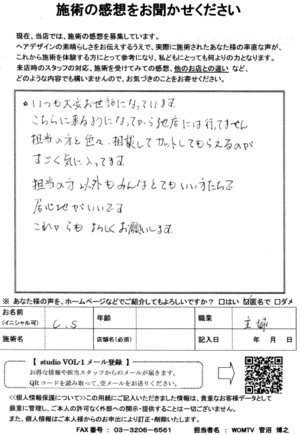 施術の感想をお聞かせください
現在、当店では、施術の感想を募集しています。
ヘアデザインの素晴らしさをお伝えするうえで、実際に施術されたあなた様の率直な声が、
これから施術を体験する方にとって参考になり、私どもにとっても何よりの力となります。
来店時のスタッフの対応、施術を受けてみての感想、他のお店との違い など、
どのような内容でも構いませんので、お気づきのことをお寄せください。
いつも大変お世話になっています
こちらに来るようになってから他店には行ってません
担当の方と色々、相談してカットしてもらえるのが
すごく気に入ってます
担当の方以外もみんなとてもいい方たちで
居心地がいいです
これからもよろしくお願いします
※ あなた様の声を、ホームページなどでご紹介してもよろしいですか? □はい ☑匿名で □ダメ
お名前
(イニシャル可)
C.S
年齢
職業
主婦
施術名
店舗名(必須)
記入日 年 月 日
【 studio VOL-1 メール登録 】
お得な情報や担当スタッフからのメールが届きます。
QRコードを読み取って、空メールをお送りください。
<個人情報保護について>この用紙にご記入いただきました情報は、貴重なお客様データとして
厳重に管理し、ご本人の許可なく外部への開示・提供することは一切ございません。
また、個人情報はご本人様からのお申出により訂正・削除いたします。
FAX番号 : 03-3206-6561 担当者名 : WOMTV 菅沼 博之